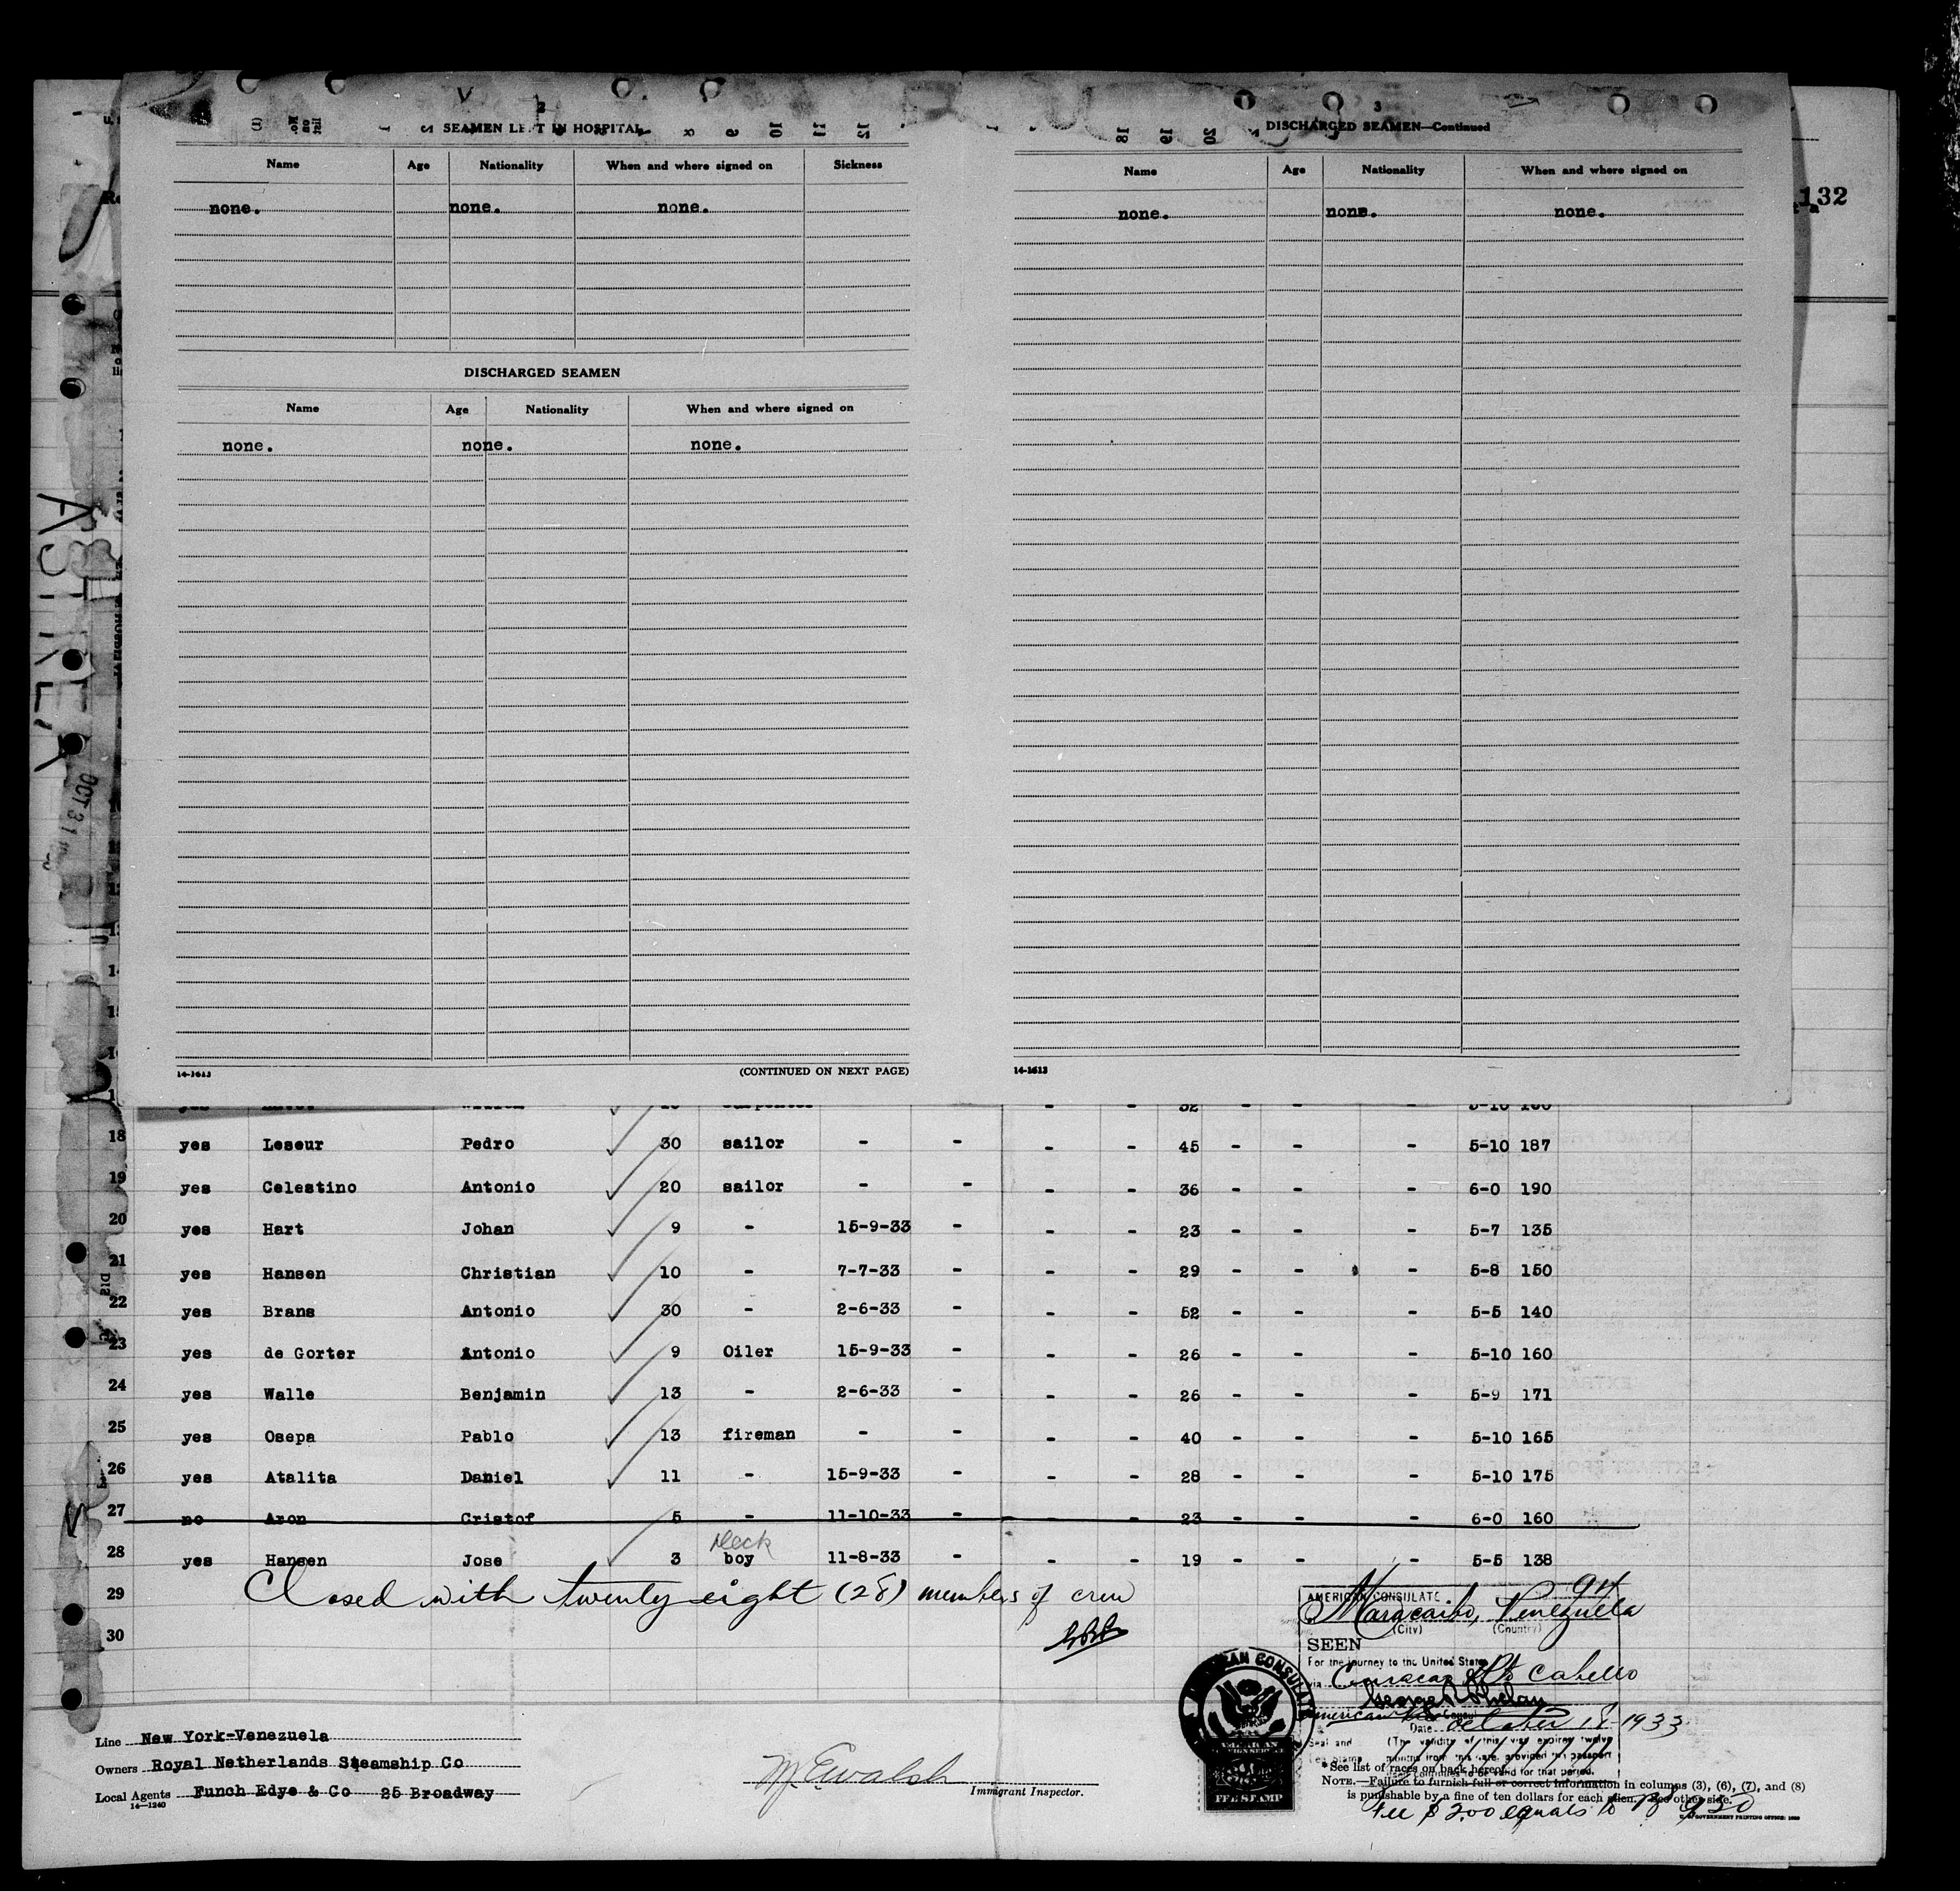 2
SEAMEN LEFT IN HOSPITAL
Name Age Nationality When and where signed on Sickness
none. none. none.
DISCHARGED SEAMEN
Name Age Nationality When and where signed on
none. none. none.
14-1613 (CONTINUED ON NEXT PAGE)
3
DISCHARGED SEAMEN—Continued
Name Age Nationality When and where signed on
none. none. none.
14-1613
132
ASTREA
OCT 31
18 yes Leseur Pedro 30 sailor - - - - 45 - - - 5-10 187
19 yes Celestino Antonio 20 sailor - - - - 36 - - - 6-0 190
20 yes Hart Johan 9 - 15-9-33 - - - 23 - - - 5-7 135
21 yes Hansen Christian 10 - 7-7-33 - - - 29 - - - 5-8 150
22 yes Brans Antonio 30 - 2-6-33 - - - 52 - - - 5-5 140
23 yes de Gorter Antonio 9 Oiler 15-9-33 - - - 26 - - - 5-10 160
24 yes Walle Benjamin 13 - 2-6-33 - - - 26 - - - 5-9 171
25 yes Osepa Pablo 13 fireman - - - - 40 - - - 5-10 165
26 yes Atalita Daniel 11 - 15-9-33 - - - 28 - - - 5-10 175
27 no Aron Cristof 5 - 11-10-33 - - - 23 - - - 6-0 160
28 yes Hansen Jose 3 Deck boy 11-8-33 - - - 19 - - - 5-5 138
29 Closed with twenty eight (28) members of crew
30
AMERICAN CONSULATE
Maracaibo, Venezuela
(City) (Country)
SEEN
For the journey to the United States
via Curacao & Pto Cabello
George R Phelan
American Vice Consul
Date October 18-1933
(The validity of this visa expires twelve
months from this date, provided the passport
continues to be valid for that period.
AMERICAN CONSULATE
AMERICAN
FOREIGN SERVICE
FEE STAMP
Line New York-Venezuela
Owners Royal Netherlands Steamship Co
Local Agents Funch Edye & Co 25 Broadway
14—1240
Immigrant Inspector.
*See list of races on back hereof.
NOTE.—Failure to furnish full or correct information in columns (3), (6), (7), and (8)
is punishable by a fine of ten dollars for each alien. See other side.
Fee $2.00 equals to
U. S. GOVERNMENT PRINTING OFFICE